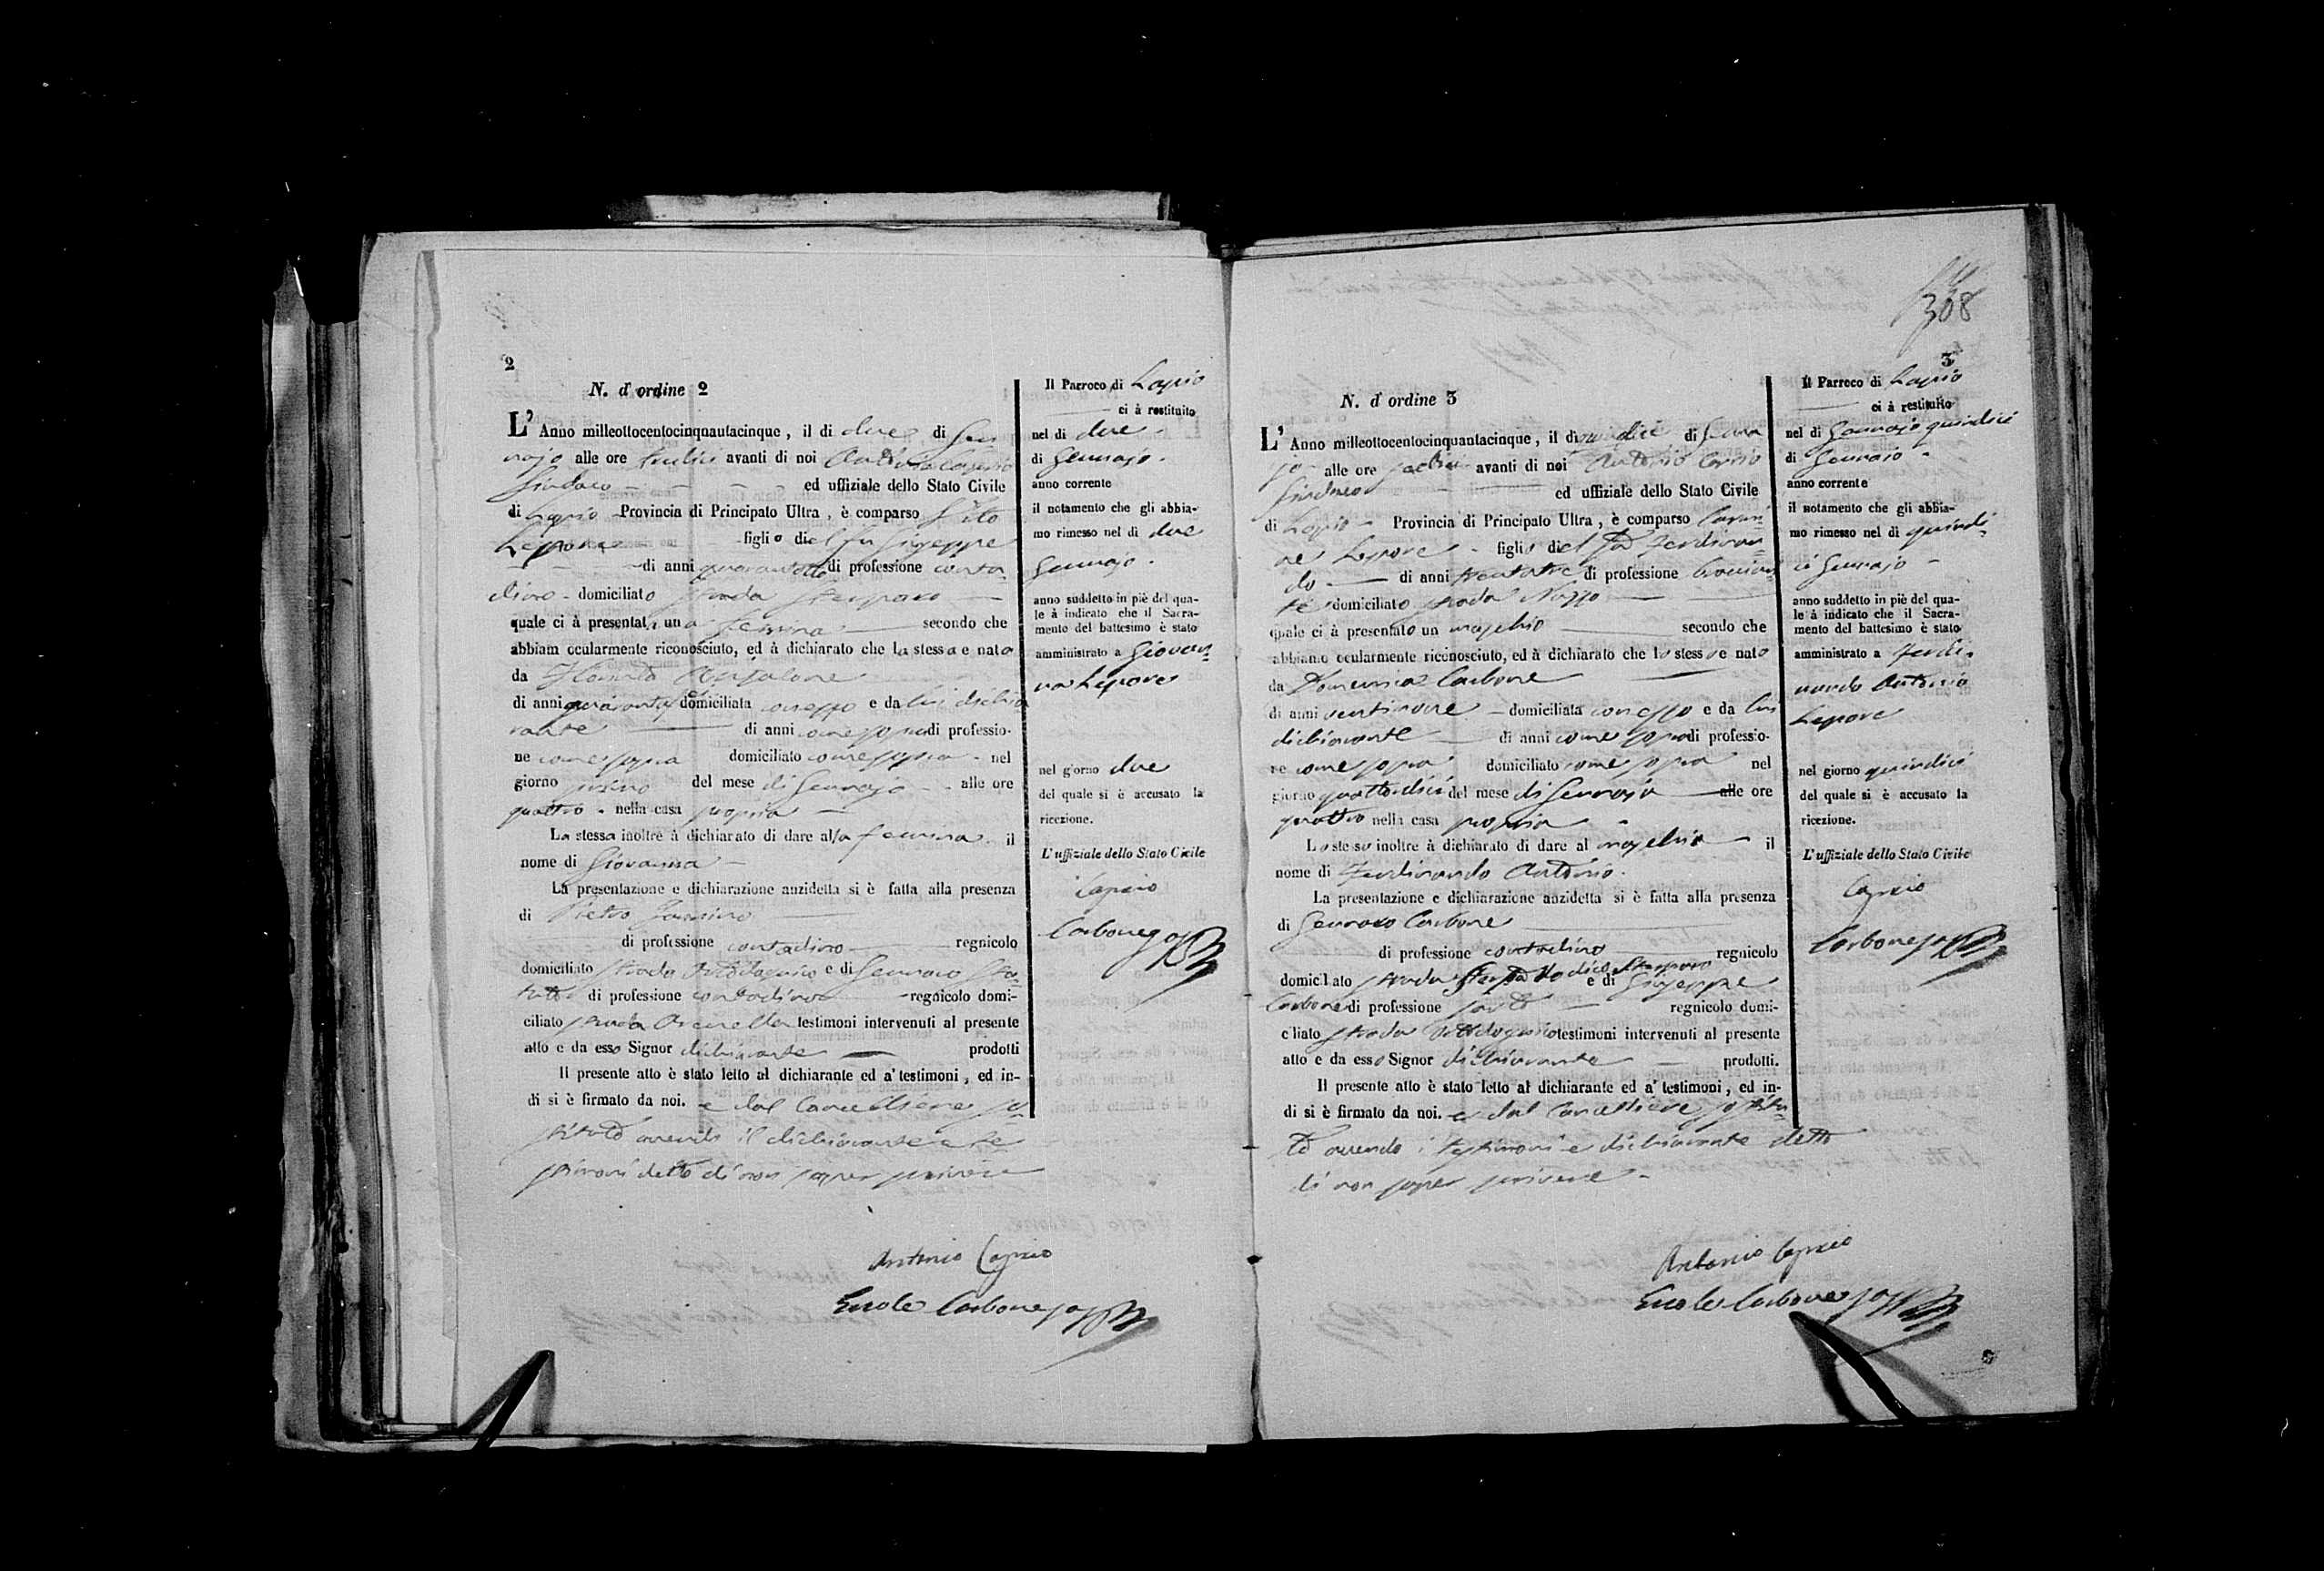 2
N. d'ordine 2
L' Anno milleottocentocinquantacinque, il di due di Gen
najo alle ore avanti di noi Antonio Caprio
Sindaco ed uffiziale dello Stato Civile
di Lapio Provincia di Principato Ultra, è comparso Vito
Lepore figlio del fu Giuseppe
di anni quarantotto di professione conta-
dino domiciliato strada
quale ci à presentata una femina secondo che
abbiam ocularmente riconosciuto, ed à dichiarato che la stessa e nata
da
di anni quaranta domiciliata e da lui dichia
rante di anni come sopra di professio-
ne come sopra domiciliato come sopra nel
giorno primo del mese di Gennajo alle ore
quattro nella casa propria
La stessa inoltre à dichiarato di dare alla femina il
nome di Giovanna
La presentazione e dichiarazione anzidetta si è fatta alla presenza
di Pietro
di professione contadino regnicolo
domiciliato strada e di Gennaro
di professione contadino regnicolo domi-
ciliato strada testimoni intervenuti al presente
atto e da esso Signor dichiarante prodotti
Il presente atto è stato letto al dichiarante ed a' testimoni, ed in-
di si è firmato da noi. e dal Cancelliere so-
stituto avendo il dichiarante e te
stimoni detto di non saper scrivere
Antonio Caprio
Ercole Carbone
Il Parroco di Lapio
ci à restituito
nel di due
di Gennajo
anno corrente
il notamento che gli abbia-
mo rimesso nel di due
Gennajo
anno suddetto in piè del qua-
le à indicato che il Sacra-
mento del battesimo è stato
amministrato a Giovan-
na Lepore
nel giorno due
del quale si è accusato la
ricezione.
L'uffiziale dello Stato Civile
Caprio
Carbone
308
3
N. d'ordine 3
L' Anno milleottocentocinquantacinque, il di quindici di Genna
jo alle ore avanti di noi Antonio Caprio
Sindaco ed uffiziale dello Stato Civile
di Lapio Provincia di Principato Ultra, è comparso Carmi-
ne Lepore figlio del fu Ferdinan-
do di anni trentatre di professione
domiciliato strada
quale ci à presentato un maschio secondo che
abbiamo ocularmente riconosciuto, ed à dichiarato che lo stesso e nato
da Domenica Carbone
di anni ventinove domiciliata e da lui
dichiarante di anni come sopra di professio-
ne come sopra domiciliato come sopra nel
giorno quattordici del mese di Gennajo alle ore
quattro nella casa propria
Lo stesso inoltre à dichiarato di dare al maschio il
nome di Ferdinando Antonio
La presentazione e dichiarazione anzidetta si è fatta alla presenza
di Gennaro Carbone
di professione contadino regnicolo
domiciliato strada e di Giuseppe
Carbone di professione regnicolo domi-
ciliato strada testimoni intervenuti al presente
atto e da esso Signor dichiarante prodotti.
Il presente atto è stato letto al dichiarante ed a' testimoni, ed in-
di si è firmato da noi. e dal Cancelliere sostitu-
to avendo i testimoni e dichiarante detto
di non saper scrivere
Antonio Caprio
Ercole Carbone
Il Parroco di Lapio
ci à restituito
nel di Gennajo quindici
di Gennaio
anno corrente
il notamento che gli abbia-
mo rimesso nel di quindi-
ci Gennajo
anno suddetto in piè del qua-
le à indicato che il Sacra-
mento del battesimo è stato
amministrato a Ferdi-
nando Antonio
Lepore
nel giorno quindici
del quale si è accusato la
ricezione.
L'uffiziale dello Stato Civile
Caprio
Carbone